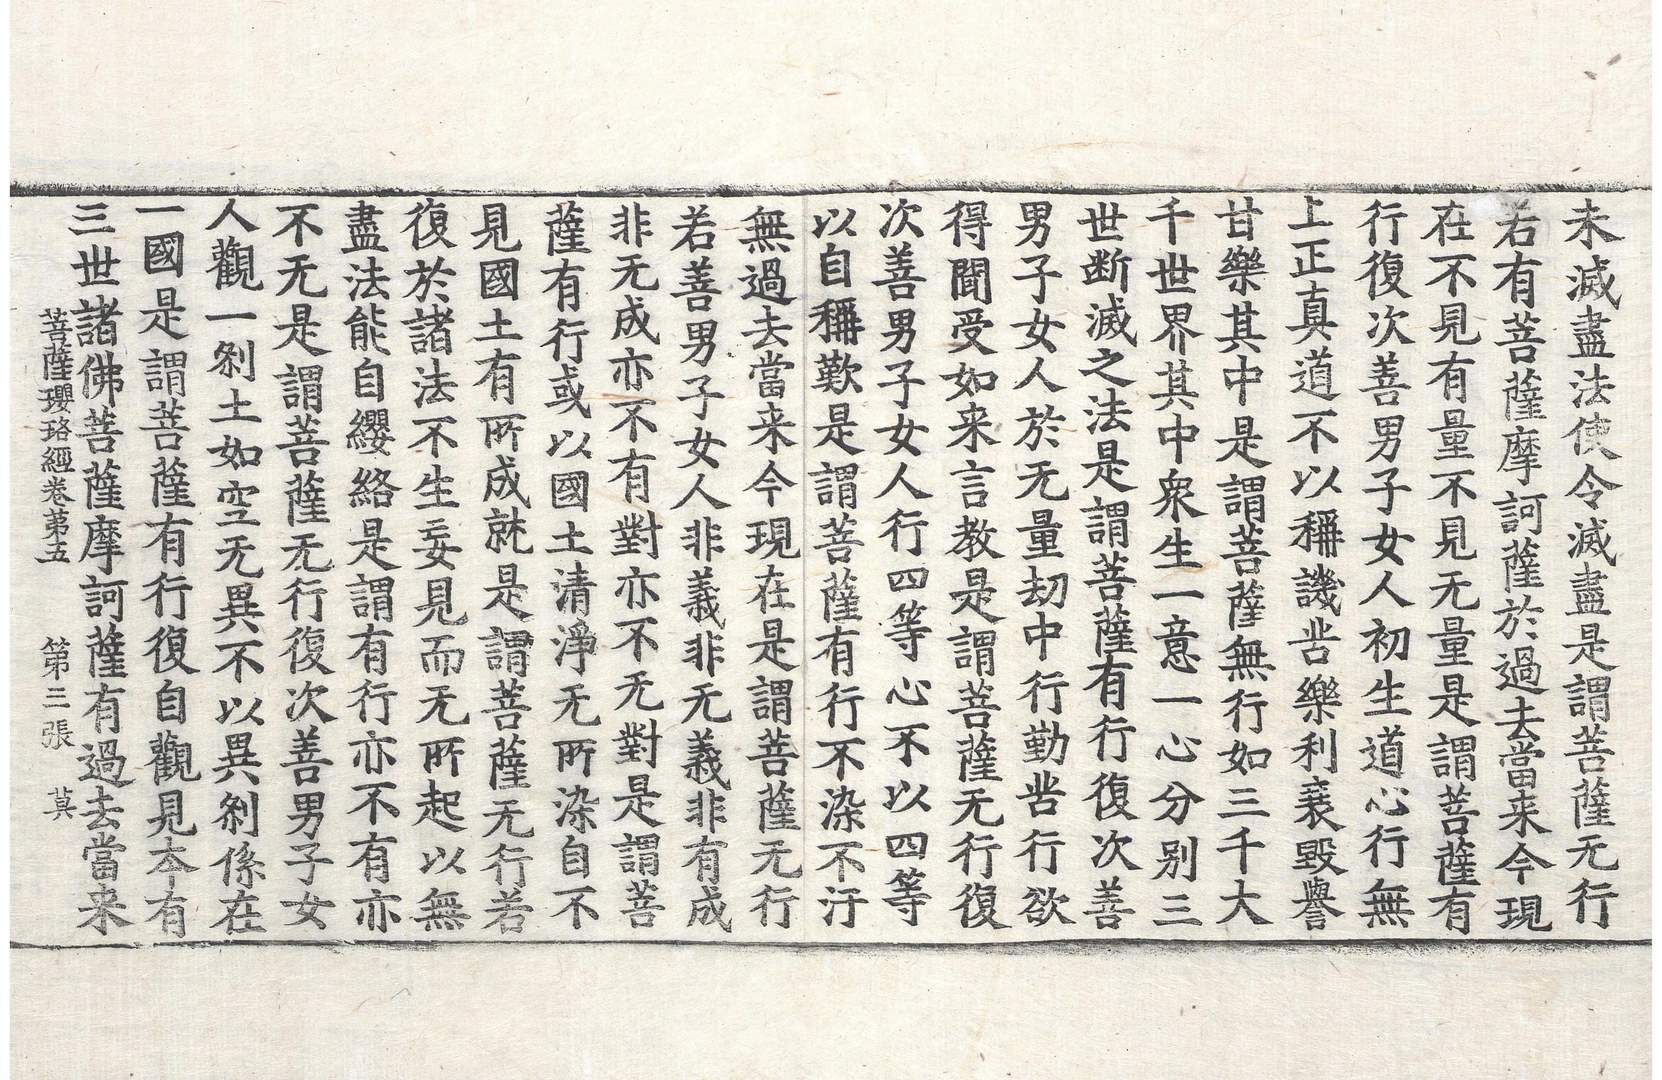 未滅盡法使令滅盡是謂菩薩无行
若有菩薩摩訶薩於過去當来今現
在不見有量不見无量是謂菩薩有
行復次善男子女人初生道心行無
上正真道不以稱譏苦樂利衰毀譽
甘樂其中是謂菩薩無行如三千大
千世界其中衆生一意一心分别三
世断滅之法是謂菩薩有行復次善
男子女人於无量劫中行勤苦行欲
得聞受如来言教是謂菩薩无行復
次善男子女人行四等心不以四等
以自稱歎是謂菩薩有行不染不汙
無過去當来今現在是謂菩薩无行
若善男子女人非義非无義非有成
非无成亦不有對亦不无對是謂菩
薩有行或以國土清淨无所染自不
見國土有所成就是謂菩薩无行若
復於諸法不生妄見而无所起以無
盡法能自纓絡是謂有行亦不有亦
不无是謂菩薩无行復次善男子女
人觀一刹土如空无異不以異刹係在
一國是謂菩薩有行復自觀見本有
三世諸佛菩薩摩訶薩有過去當来
菩薩瓔珞經卷第五 第三張 莫